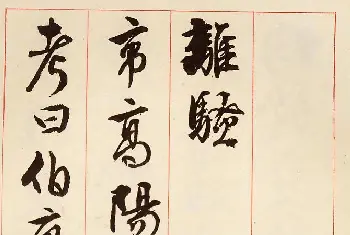 離騷
帝高陽
考曰伯庸